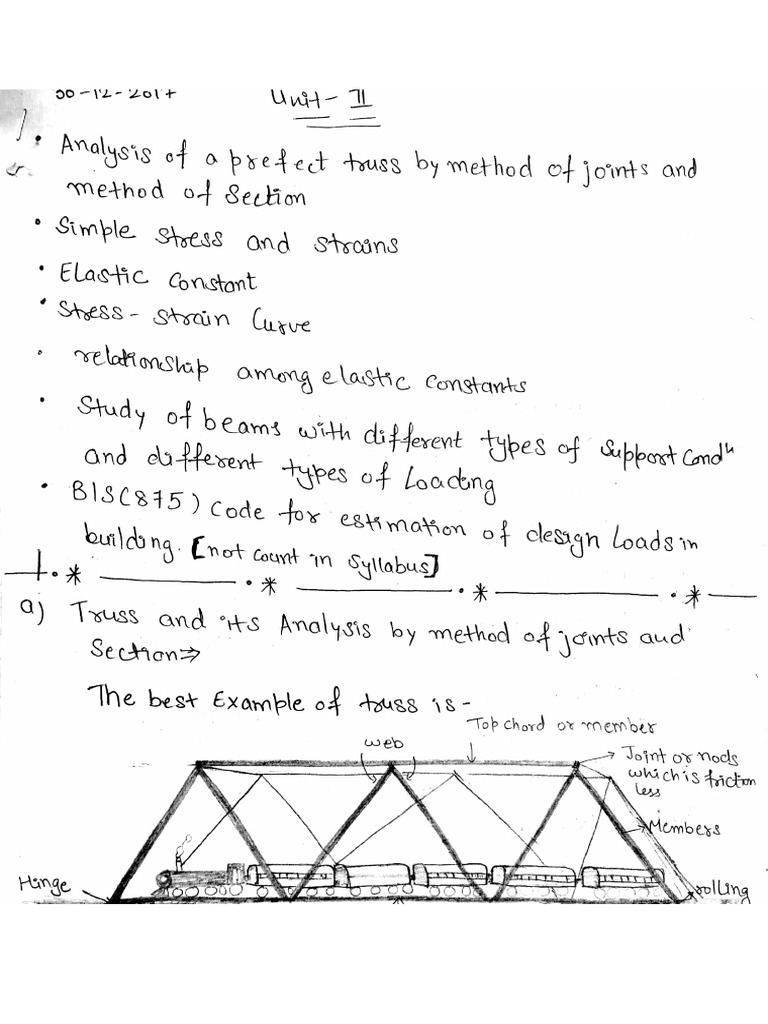 30-12-2017 Unit-II
• Analysis of a prefect truss by method of joints and
method of Section
• Simple stress and strains
• Elastic Constant
• Stress-strain Curve
• relationship among elastic constants
• Study of beams with different types of support Condn
and different types of Loading
• BIS(875) Code for estimation of design Loads in
building. [not count in syllabus]
a) Truss and its Analysis by method of joints and
Section⇒
The best Example of truss is-
Top chord or member
web
Joint or nods
which is friction
less
Members
Hinge
rolling